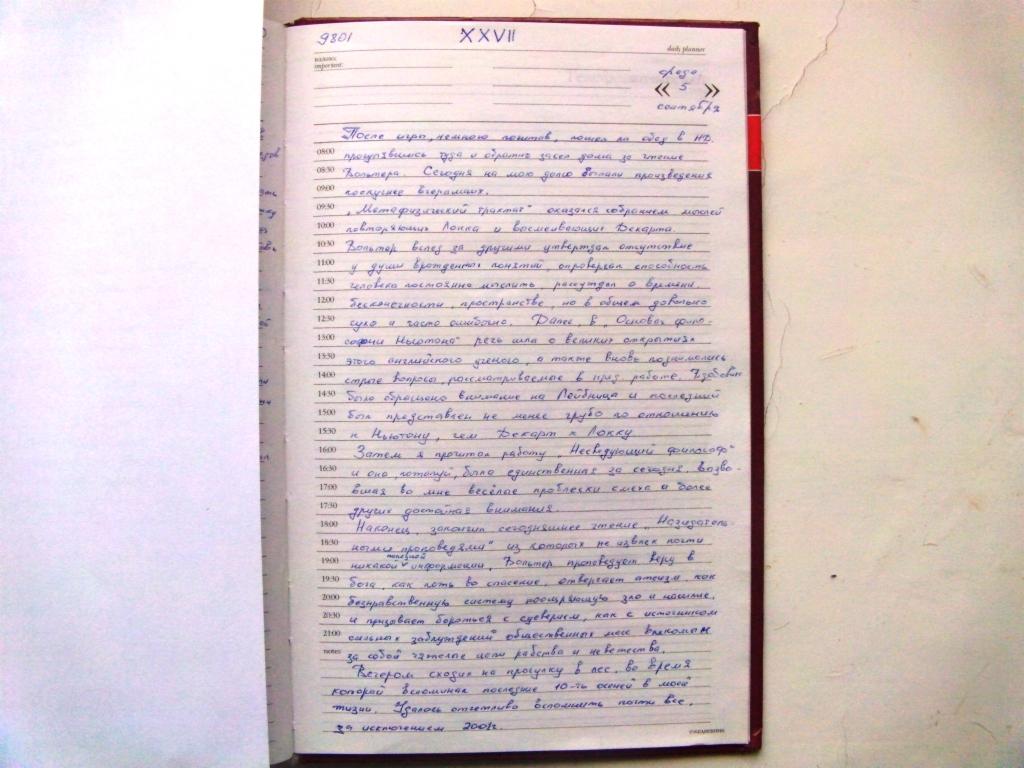 9801 XXVII
важно:
important:
daily planner
среда
« 5 »
сентября
После игры, немного почитав, пошел на обед в
08:00
прогулявшись туда и обратно засел дома за чтение
08:30
Вольтера. Сегодня на мою долю выпали произведения
09:00
поскучнее вчерашних.
09:30
„Метафизический трактат" оказался собранием мыслей
10:00
повторяющих Локка и высмеивающих Декарта.
10:30
Вольтер вслед за другими утверждал отсутствие
11:00
у души врожденных понятий, опровергал способность
11:30
человека постоянно мыслить, рассуждал о времени,
12:00
бесконечности, пространстве, но в общем довольно
12:30
сухо и часто ошибочно. Далее, в „Основах фило-
13:00
софии Ньютона" речь шла о великих открытиях
13:30
этого английского ученого, а также вновь поднимались
14:00
старые вопросы, рассматриваемые в пред. работе.
14:30
было обращено внимание на Лейбница и последний
15:00
был представлен не менее грубо по отношению
15:30
к Ньютону, чем Декарт к Локку.
16:00
Затем я прочитал работу „Несведующий философ"
16:30
и она, пожалуй, была единственная за сегодня вызво-
17:00
вшая во мне весёлые проблески смеха и более
17:30
других достойная внимания.
18:00
Наконец, закончил сегодняшнее чтение „Назидатель-
18:30
ными проповедями" из которых не извлек почти
19:00
никакой полезной информации. Вольтер проповедует веру в
19:30
бога, как путь во спасение, отвергает атеизм, как
20:00
безнравственную систему поощряющую зло и насилие,
20:30
и призывает бороться с суеверием, как с источником
21:00
сильных заблуждений общественных масс влекомах
notes
за собой тяжелые цепи рабства и невежества.
Вечером сходил на прогулку в лес, во время
которой вспоминал последние 10-ть осеней в моей
жизни. Удалось отчетливо вспомнить почти все,
за исключением 2001г.
ЕЖЕДНЕВНИК